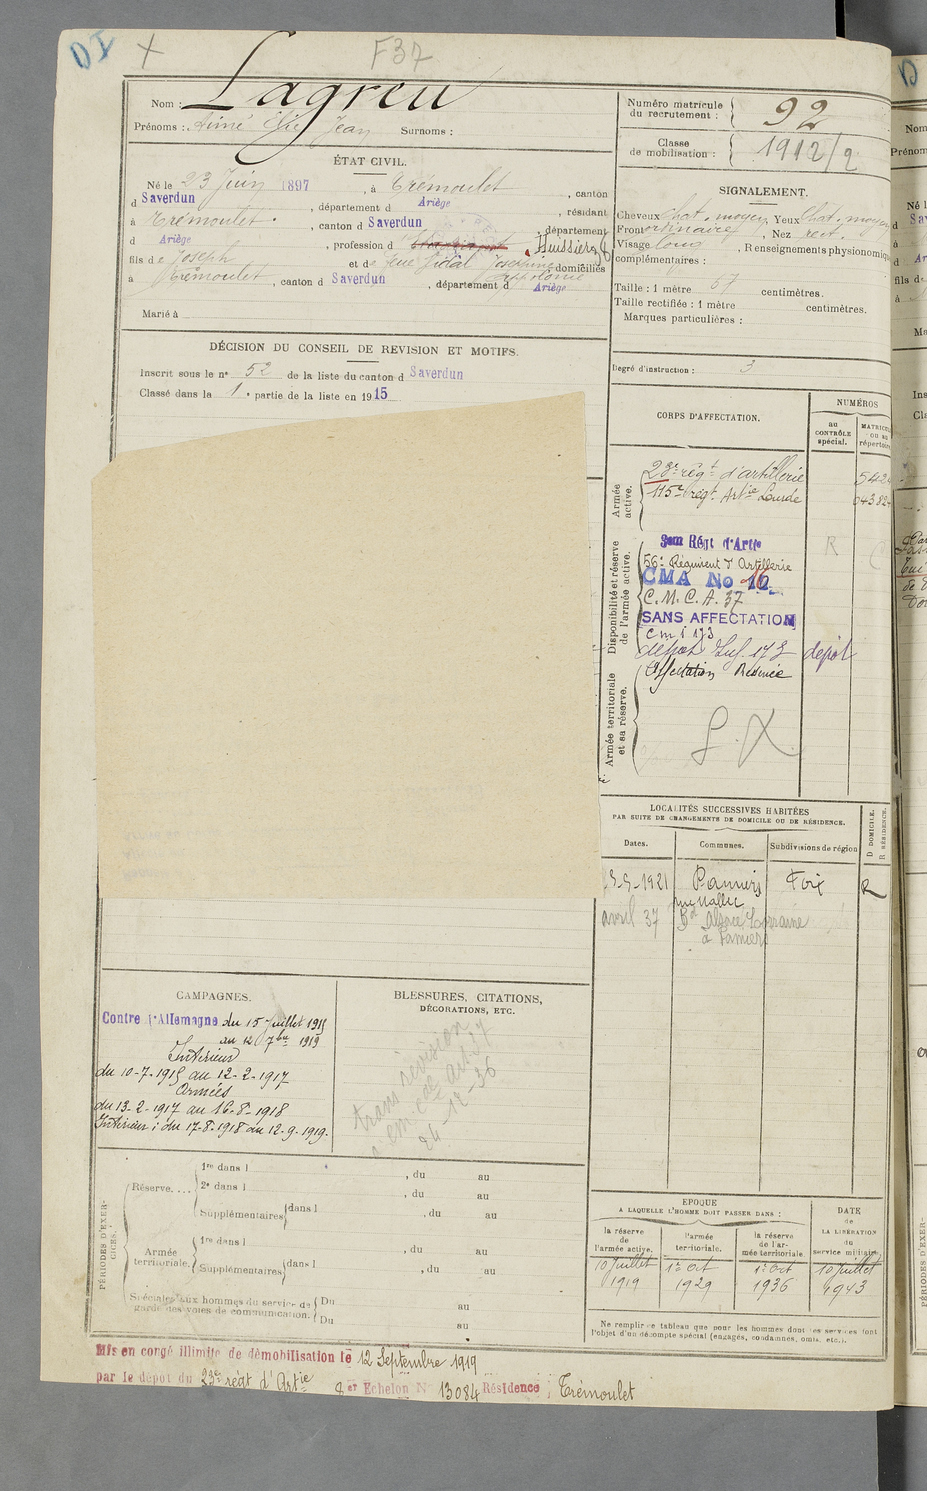 DI + F37
Nom : Lagreu
Prénoms : Aimé Elie Jean Surnoms :
ÉTAT CIVIL.
Né le 23 Juin 1897, à Trémoulet, canton
d Saverdun, département d Ariège, résidant
à Trémoulet, canton d Saverdun, département
d Ariège, profession d Huissier
fils de Joseph et de feue Vidal Joséphine Appolonie domiciliés
à Trémoulet, canton d Saverdun, département d Ariège
Marié à
DÉCISION DU CONSEIL DE REVISION ET MOTIFS.
Inscrit sous le n° 52 de la liste du canton d Saverdun
Classé dans la 1e partie de la liste en 1915
CAMPAGNES.
Contre l'Allemagne du 15 Juillet 1915
au 12 7bre 1919
Intérieur
du 10-7-1915 au 12-2-1917
Armées
du 13-2-1917 au 16-8-1918
Intérieur : du 17-8-1918 au 12-9-1919.
BLESSURES, CITATIONS,
DÉCORATIONS, ETC.
trans révision
24-12-36
PÉRIODES D'EXERCICES.
Réserve....
1re dans l , du au
2e dans l , du au
Supplémentaires dans l , du au
Armée
territoriale.
1re dans l , du au
Supplémentaires dans l , du au
Spéciales aux hommes du service de
garde des voies de communication.
Du au
Du au
Mis en congé illimité de démobilisation le 12 Septembre 1919
par le dépôt du 23e régt d'Artie 8 er Echelon N° 13084 Résidence : Trémoulet
Numéro matricule
du recrutement : 92
Classe
de mobilisation : 1912/2
SIGNALEMENT.
Cheveux chat. moyen Yeux chat. moyen
Front ordinaire, Nez rect.
Visage long, Renseignements physionomiq
complémentaires :
Taille : 1 mètre 67 centimètres.
Taille rectifiée : 1 mètre centimètres.
Marques particulières :
Degré d'instruction : 3
CORPS D'AFFECTATION.
NUMÉROS
au
CONTRÔLE
spécial.
MATRICULE
ou au
répertoire
Armée
active.
23e régt d'artillerie 542
115e régt Artie Lourde 0382
Disponibilité et réserve
de l'armée active.
3em Régt d'Artie
56e Régiment d'Artillerie
CMA No 16
C.M.C.A. 37
SANS AFFECTATION
cmi 173
dépôt Inf. 173 dépôt
Armée territoriale
et sa réserve.
Affectation Réservée
S.X
LOCALITÉS SUCCESSIVES HABITÉES
PAR SUITE DE CHANGEMENTS DE DOMICILE OU DE RÉSIDENCE.
Dates.
Communes.
Subdivisions de région
D DOMICILE.
R RÉSIDENCE.
-1921 Pamiers Foix R
avril 37 Bd Alsace Lorraine
à Pamiers
ÉPOQUE
A LAQUELLE L'HOMME DOIT PASSER DANS :
DATE
de
LA LIBÉRATION
du
service militaire.
la réserve
de
l'armée active.
l'armée
territoriale.
la réserve
de l'ar-
mée territoriale.
10 Juillet 1er Oct 1er Oct 10 Juillet
1919 1929 1936 1943
Ne remplir ce tableau que pour les hommes dont les services font
l'objet d'un décompte spécial (engagés, condamnés, omis, etc.).